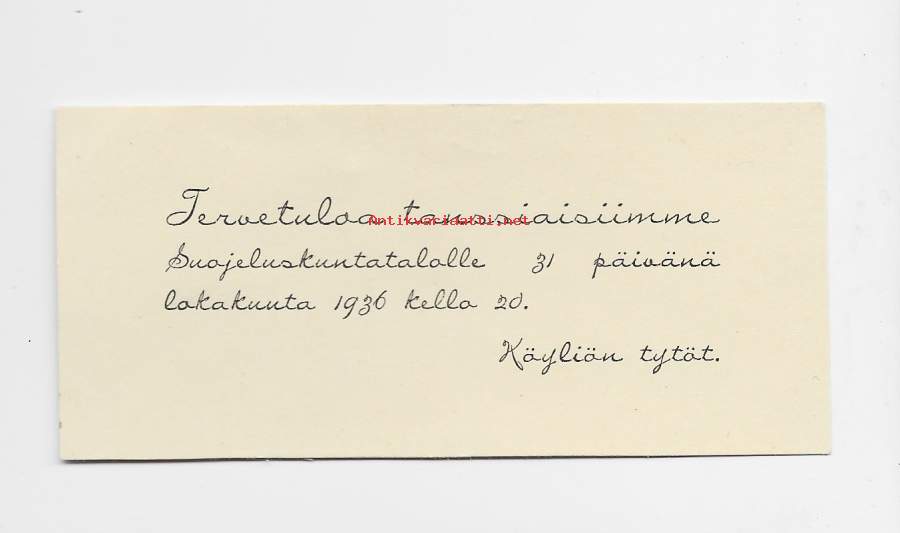 Tervetuloa tanssiaisiimme
Antikvariaatti.net
Suojeluskuntatalolle 31 päivänä
lokakuuta 1936 kello 20.
Köyliön tytöt.